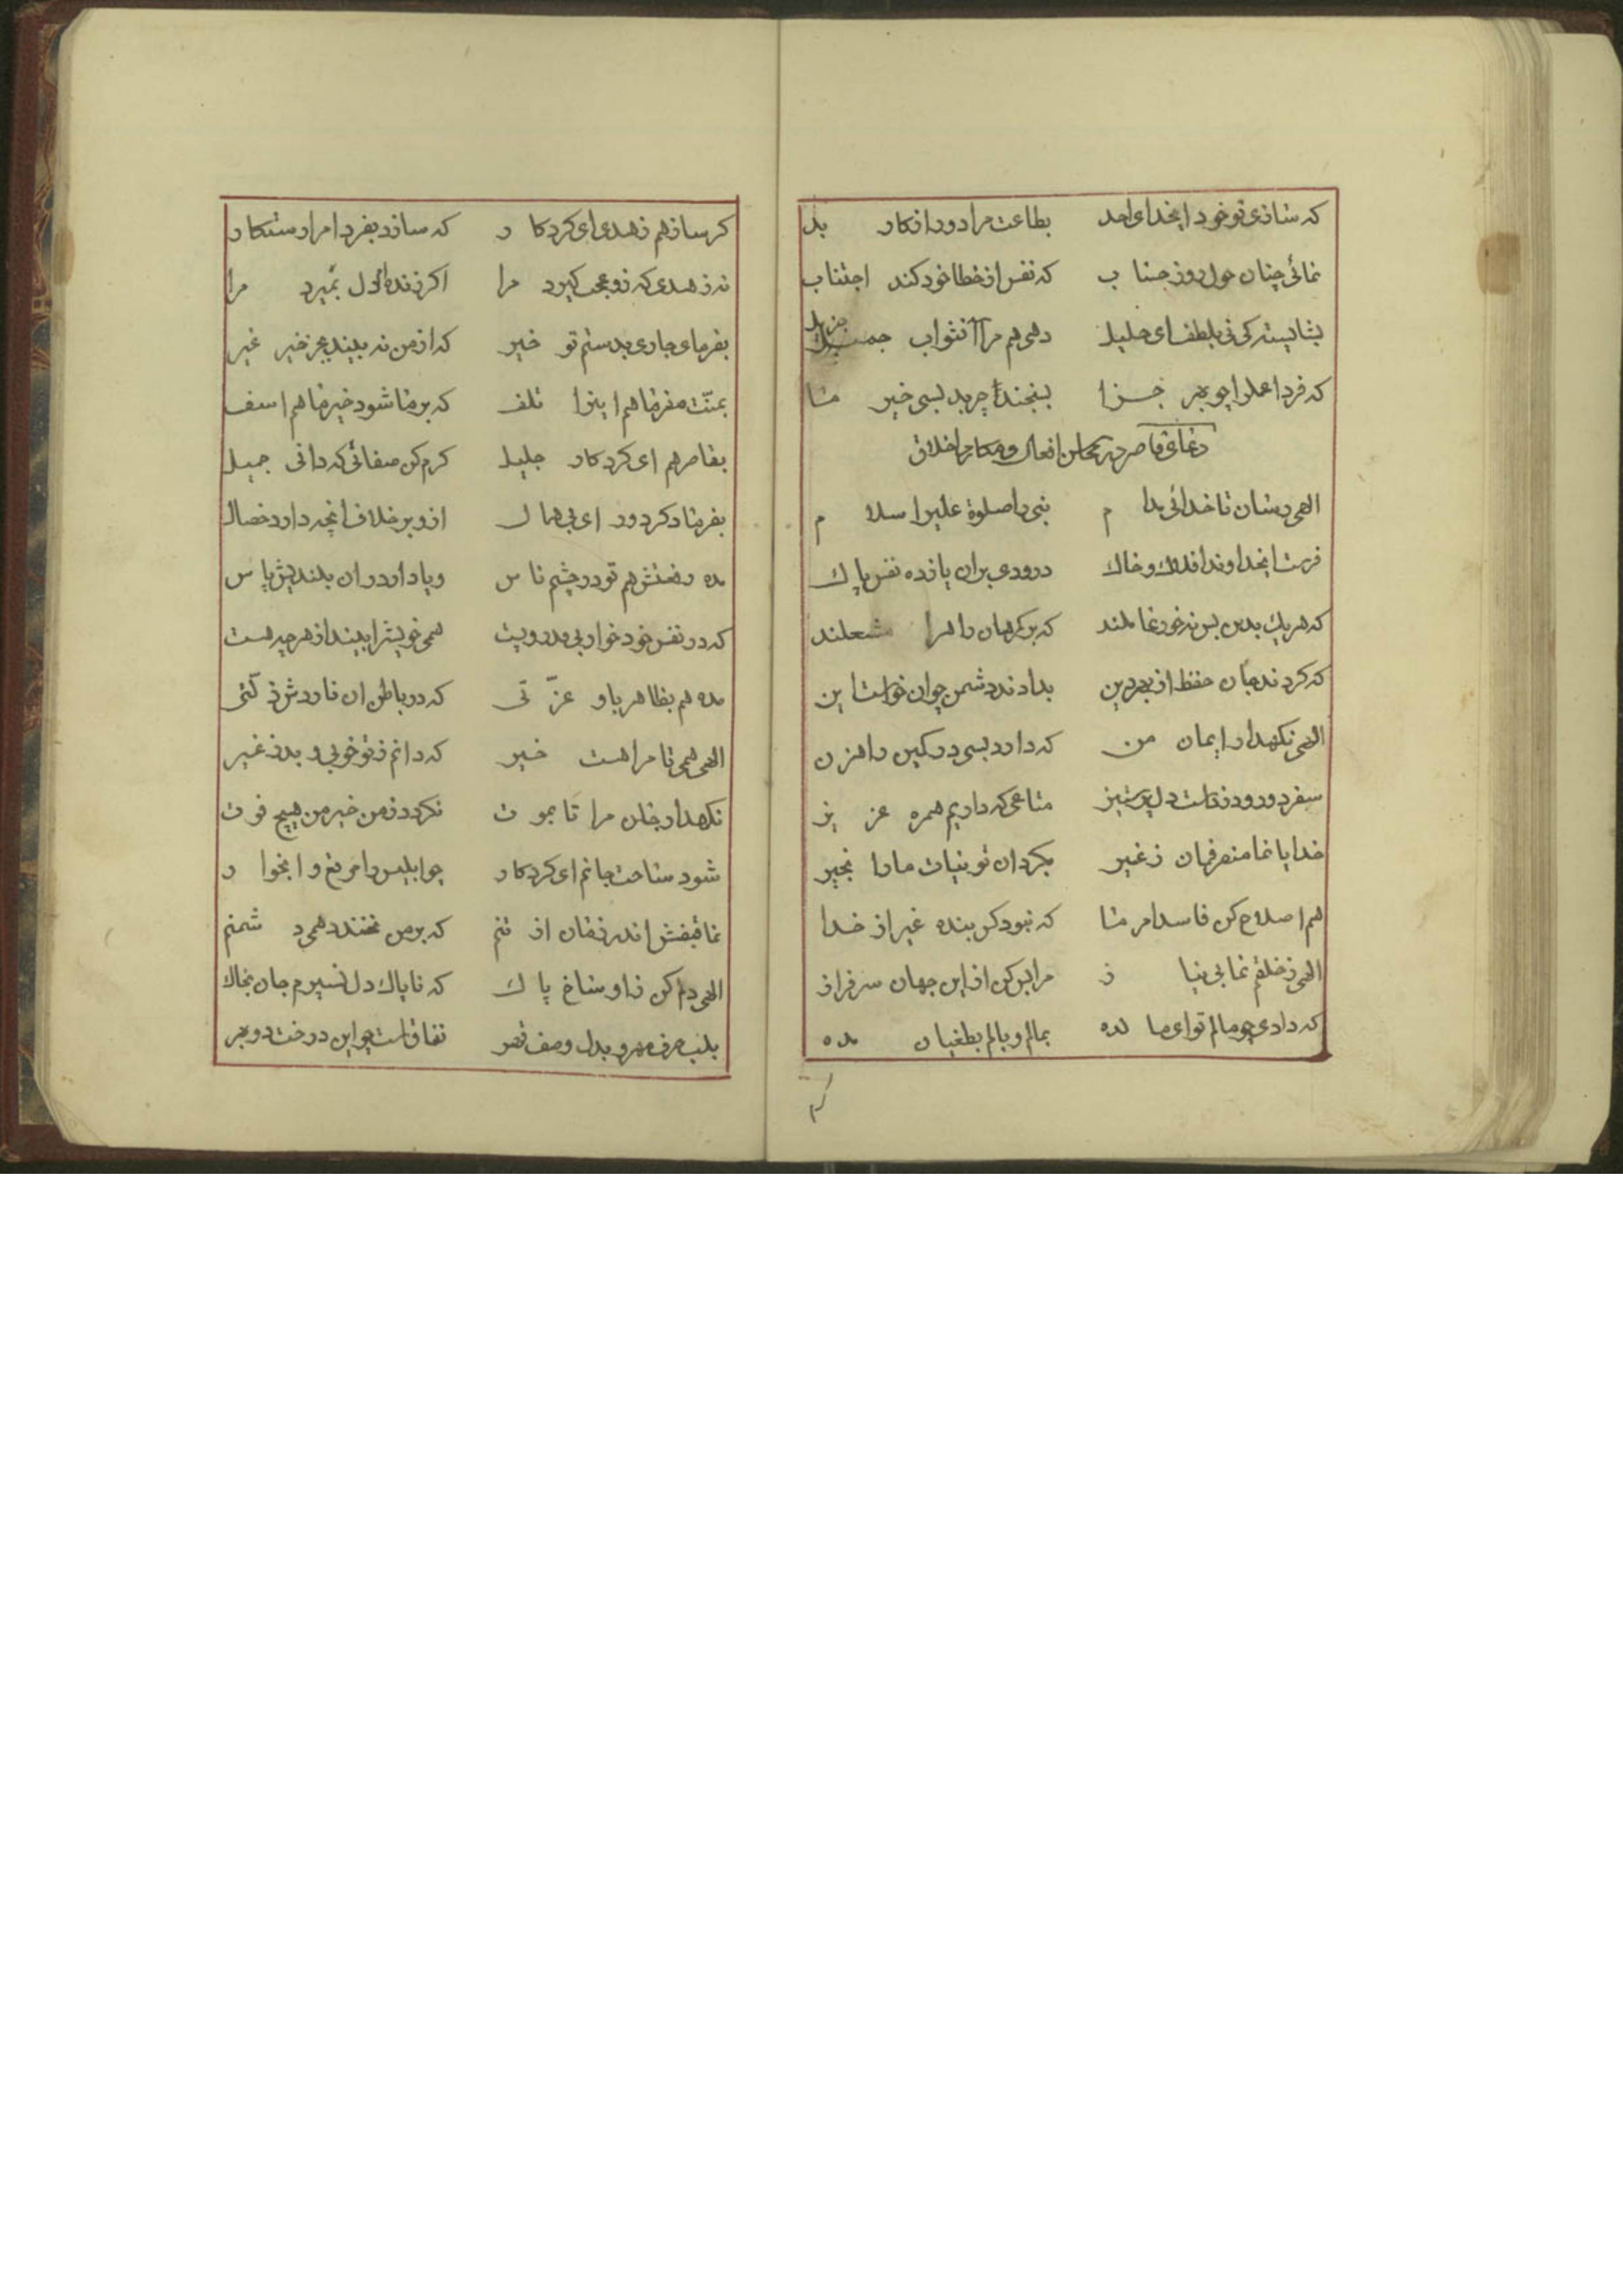 که سازی تو خود ایخدای احد بطاعت مرا دور از کار بد
نمائی چنان هول روز حساب که نفس از خطا خود کند اجتناب
بشایسته کی نی بلطف ای جلیل دهی هم مرا آنثواب جزیل
که فردا عملرا چو بهر جزا بسنجند چه بد بسی خیر ما
دعای قاصر در محاسن افعال و مکارم اخلاق
الهی رسان تا خدائی مدام نبی را صلوة علیرا سلام
فرست ایخداوند افلاک و خاک درودی بران یازده نفس پاک
که هر یک بدین بس نه خود عاملند که بر گمرهان راهرا مشعلند
که کردند جان حفظ از بهر دین بدادند دشمن چو ان خواست این
الهی نکهدار ایمان من که دارد بسی در کمین راهزن
سفر دور و دزد است دل پر ستیز متاعی که داریم همره عزیز
خدایا نما منصرفمان ز غیر بکردان تو نیات مارا بخیر
هم اصلاح کن فاسد امر ما که نبود کس بنده غیر از خدا
الهی ز خلقم نما بی نیاز مرا بس کن از این جهان سرفراز
که دادی چو مالم تو ای ما لده بمالم وبالم بطغیان مده
کرم
کرمساز هم زهدی ای کردکار که سازد بفردا مرا رستکار
نه زهدی که زو عجب کیرد مرا اکر زنده دل بمیرد مرا
بفرمای جاری بدستم تو خیر که از من نه بیند بجز خیر غیر
بمنّت مفرما هم اینرا تلف که بر ما شود خیر ما هم اسف
بقاصر هم ای کردکار جلیل کرم کن صفاتی که دانی جمیل
بفرما دکر دور ای بی همال از و بر خلاف انچه دارد خصال
مده رفعتش هم تو در چشم ناس و یا دار در ان بلندیش پاس
که در نفس خود خوار بیند و پست همی خویشرا بیند از هر چه هست
مده هم بظاهر باو عزّتی که در باطن ان ناردش ذلّتی
الهی همی تا مرا هست خیر که دانم ز تو خوبی و بد ز غیر
نکهدار جان مرا تا بموت نکردد ز من خیر من هیچ فوت
شود ساحت جانم ای کردکار چو ابلیس را مرتع وا بخوار
نما قبضش اندر زمان از تنم که بر من نخندد همی دشمنم
الهی دلم کن ز اوساخ پاک که ناپاک دل نسپرم جان بخاک
بلب حرف مهر و بدل وصف قهر نفاق است چو این درخت دو بهر